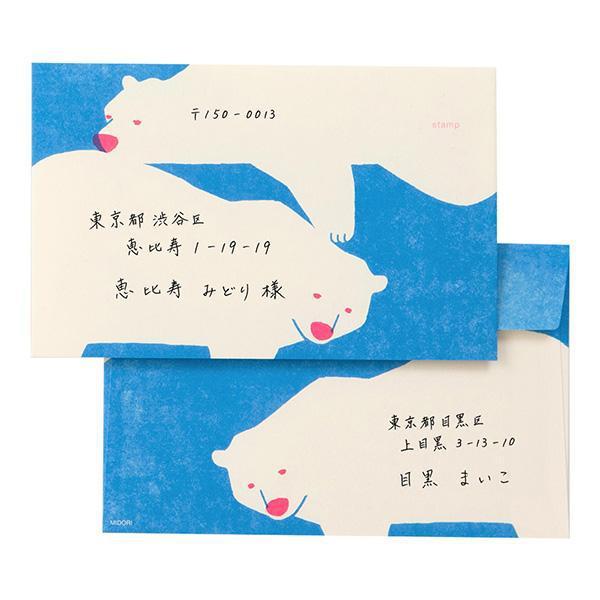 〒150-0013
stamp
東京都渋谷区
恵比寿1-19-19
恵比寿 みどり様
東京都目黒区
上目黒3-13-10
目黒 まいこ
MIDORI